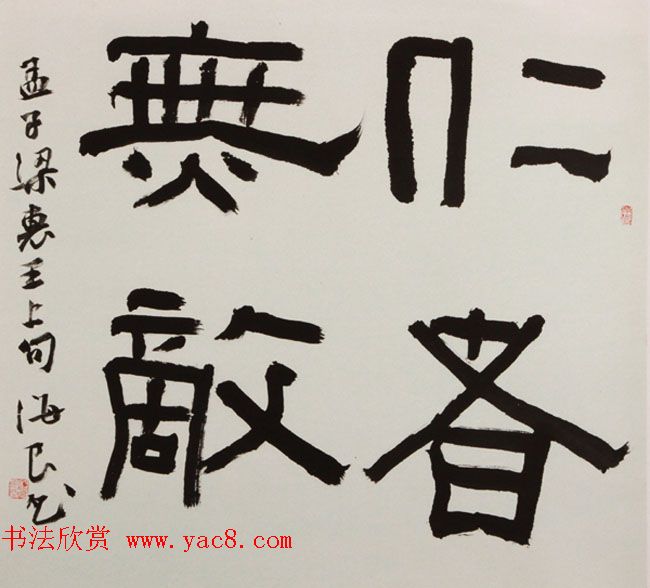 仁者
無敵
孟子梁惠王上句 海良书
书法欣赏 www.yac8.com